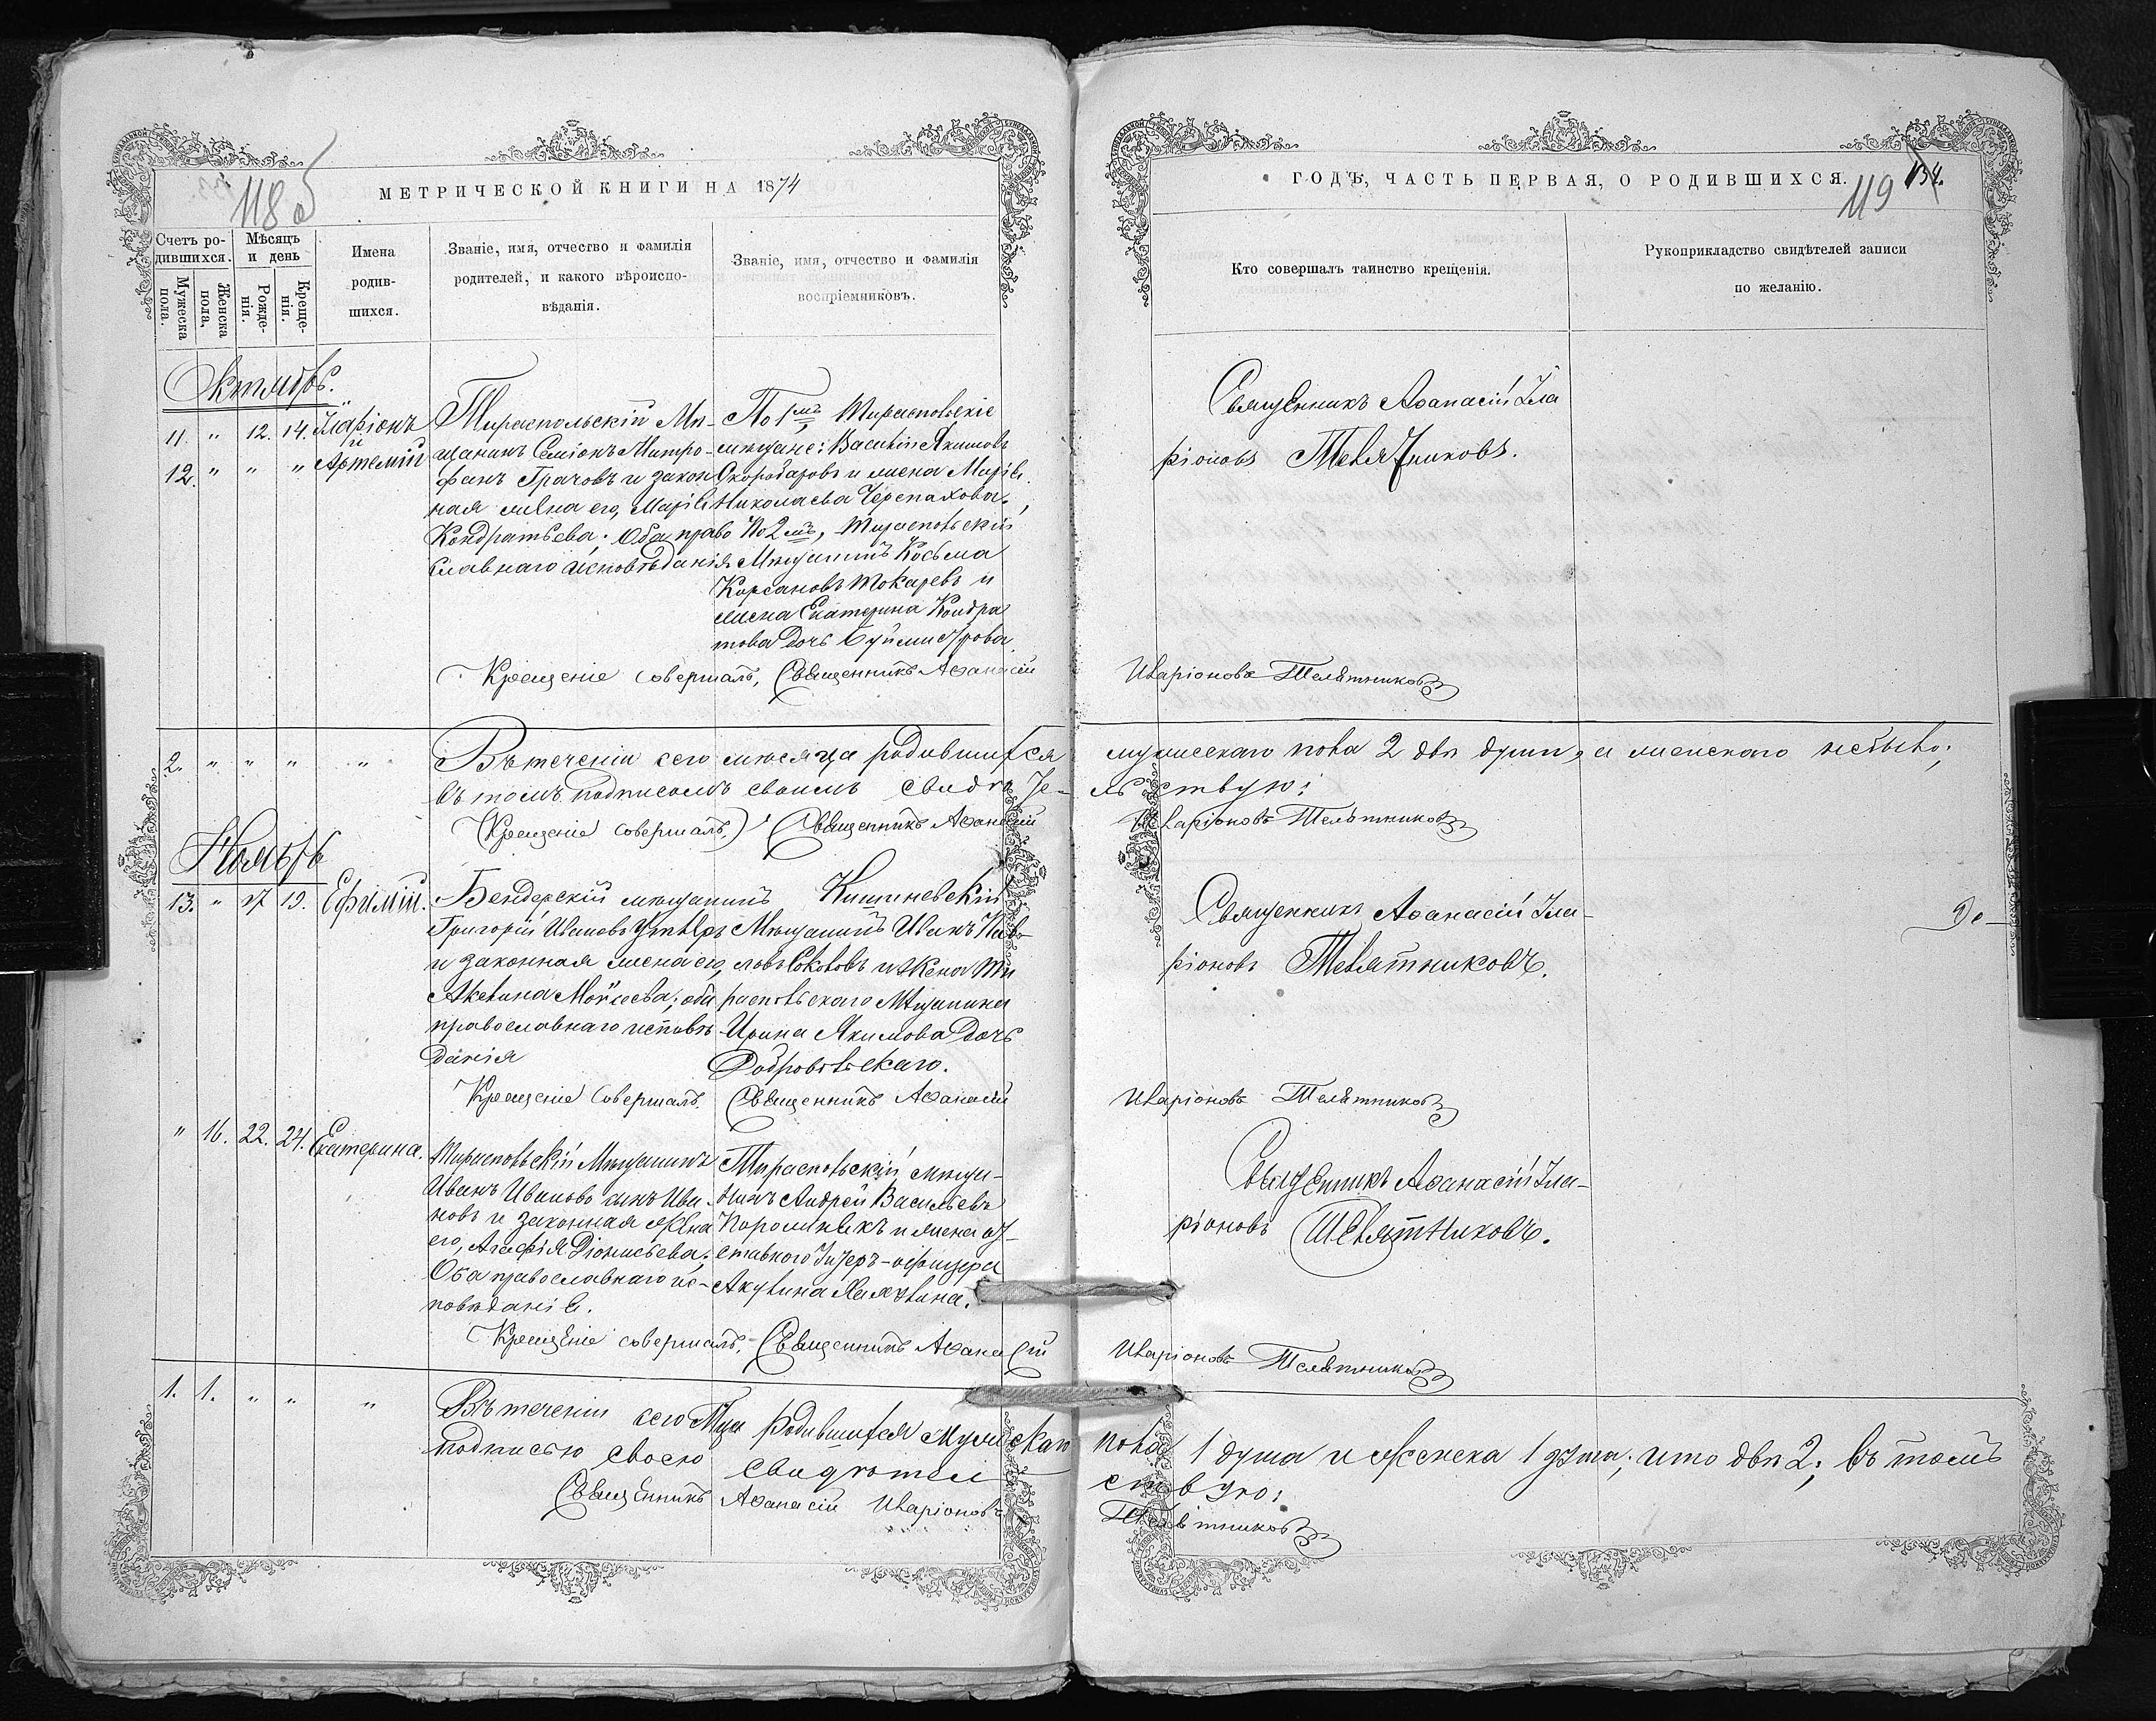 118 об
МЕТРИЧЕСКОЙ КНИГИ НА 1874
Счетъ ро-
дившихся.
Мужеска
пола.
Женска
пола,
Мѣсяцъ
и день
Рожде-
нія.
Креще-
нія.
Имена
родив-
шихся.
Званіе, имя, отчество и фамилія
родителей, и какого вѣроиспо-
вѣданія.
Званіе, имя, отчество и фамилія
воспріемниковъ.
Октябрь.
11. " 12. 14. Иларіонъ
и
12. " " " Артемій
Тираспольскій Мѣ-
щанинъ Семіонъ Митро-
фанъ Грачовъ и закон
ная жена его, Марія
Кондратьева; Оба право
славнаго исповѣданія
По 1мъ, Тираспольскіе
мѣщане: Василій Якимовъ
Скородаровъ и жена Марія
Николаева Черепахова.
По 2мъ, Тираспольскій
Мѣщанинъ Косьма
Токаревъ и
жена Екатерина Кондра
това Дочь
Крещеніе совершалъ, Священникъ Аѳанасій
2. " " " "
Въ теченіи сего мѣсяца родившихся
въ томъ подписомъ своимъ свидѣте-
(Крещеніе совершалъ,) Священникъ Аѳанасій
Ноябрь
13. " 17 19. Ефимій.
Бендерскій мѣщанинъ
Григорій Ивановъ
и законная жена его,
Акелина Моисеева; оба
православнаго исповѣ
данія
Кишиневскій
Мѣщанинъ Иванъ Пав-
ловъ Соколовъ и Жена Ти
распольскаго Мѣщанина
Ирина Якимова Дочь
Добровольскаго.
Крещеніе Совершалъ. Священникъ Аѳанасій
" 16. 22. 24. Екатерина.
Тираспольскій Мѣщанинъ
Иванъ Ивановъ сынъ Ива
новъ и законная Жена
его, Агафія Діонисьева;
Оба православнаго ис-
повѣданія.
Тираспольскій мѣща-
нинъ Андрей Васильевъ
и жена от-
ставного Унтеръ-офицера
Акулина
Крещеніе совершалъ, Священникъ Аѳанасій
1. 1. " " "
Въ теченіи сего М-ца родившихся мужскаго
подписью своею свидѣтель
Священникъ Аѳанасій Иларіоновъ
ГОДЪ, ЧАСТЬ ПЕРВАЯ, О РОДИВШИХСЯ.
119 134.
Кто совершалъ таинство крещенія.
Рукоприкладство свидѣтелей записи
по желанію.
Священникъ Аѳанасій Ила
ріоновъ Телятниковъ.
Иларіоновъ Телятниковъ
мужескаго пола 2 двѣ души, а женскаго небыло;
льствую:
Иларіоновъ Телятниковъ
Священникъ Аѳанасій Ила-
ріоновъ Телятниковъ.
Иларіоновъ Телятниковъ
Священникъ Аѳанасій Ила-
ріоновъ Телятниковъ.
Иларіоновъ Телятниковъ
пола 1 душа и Женска 1 душа; итого двѣ 2; въ томъ
ствую:
Телятниковъ